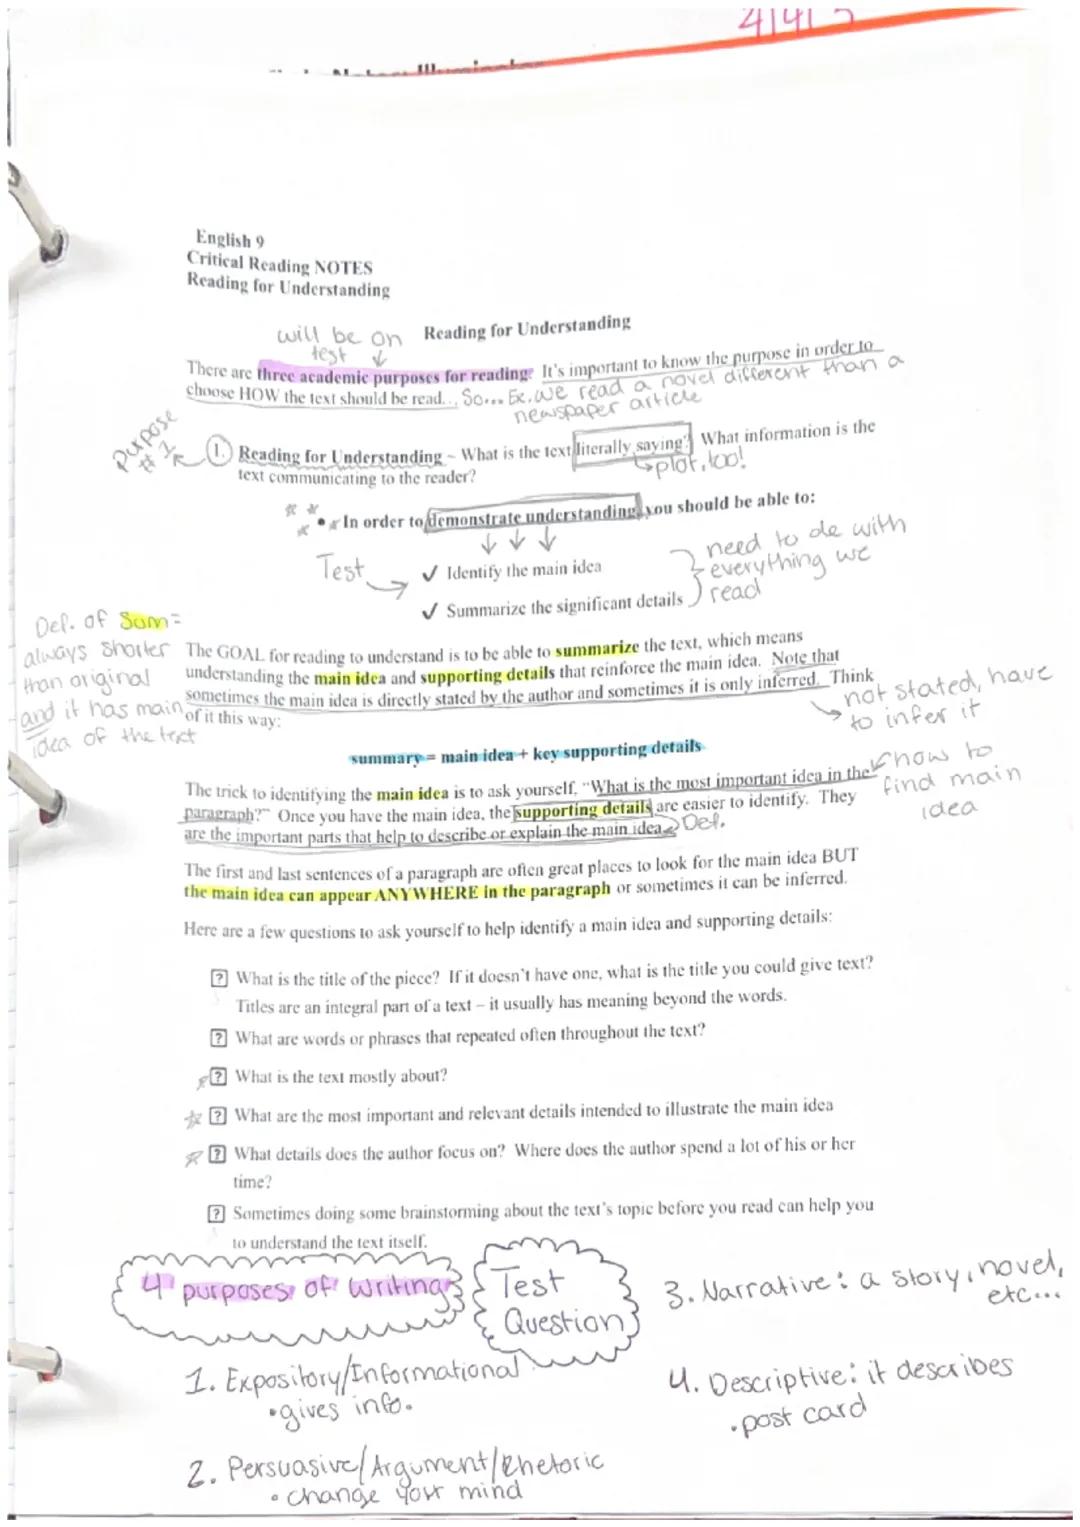 English 9
Critical Reading NOTES
Reading for Understanding
Reading for Understanding
will be on
test
There are three academic purposes for reading. It's important to know the purpose in order to
choose HOW the text should be read... So... Ex. we read a novel different than a
newspaper article
Purpose
# 1
1. Reading for Understanding ~ What is the text literally saying? What information is the
text communicating to the reader?
plot, too!
• In order to demonstrate understanding, you should be able to:
Test
✓ Identify the main idea
✓ Summarize the significant details
need to do with
everything we
read
Def. of Sum=
always shorter
than original
and it has main
idea of the text
The GOAL for reading to understand is to be able to summarize the text, which means
understanding the main idea and supporting details that reinforce the main idea. Note that
sometimes the main idea is directly stated by the author and sometimes it is only inferred. Think
of it this way:
not stated, have
to infer it
summary = main idea + key supporting details
The trick to identifying the main idea is to ask yourself, "What is the most important idea in the
paragraph?" Once you have the main idea, the supporting details are easier to identify. They
are the important parts that help to describe or explain the main idea. Def.
how to
find main
idea
The first and last sentences of a paragraph are often great places to look for the main idea BUT
the main idea can appear ANYWHERE in the paragraph or sometimes it can be inferred.
Here are a few questions to ask yourself to help identify a main idea and supporting details:
? What is the title of the piece? If it doesn't have one, what is the title you could give text?
Titles are an integral part of a text – it usually has meaning beyond the words.
? What are words or phrases that repeated often throughout the text?
? What is the text mostly about?
? What are the most important and relevant details intended to illustrate the main idea
? What details does the author focus on? Where does the author spend a lot of his or her
time?
? Sometimes doing some brainstorming about the text's topic before you read can help you
to understand the text itself.
4 purposes of writing
Test
Question
1. Expository/Informational
• gives info.
2. Persuasive/Argument/Rhetoric
• change your mind
3. Narrative: a story, novel,
etc...
4. Descriptive: it describes
• post card